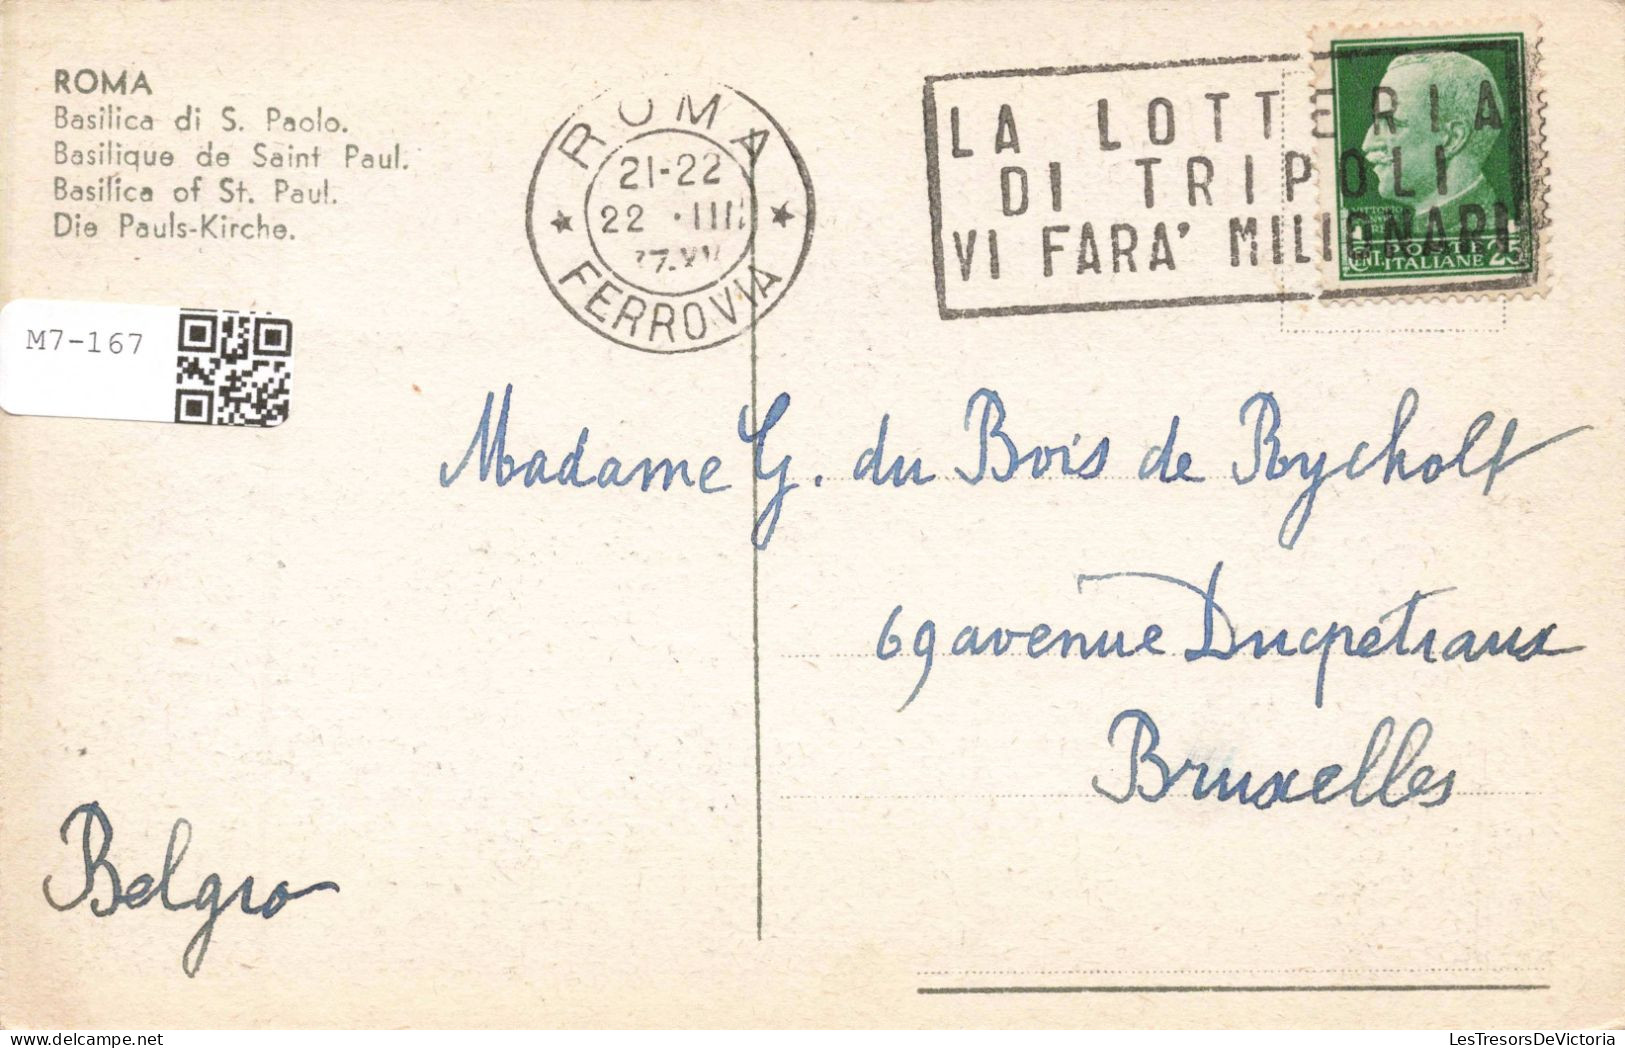 ROMA
Basilica di S. Paolo.
Basilique de Saint Paul.
Basilica of St. Paul.
Die Pauls-Kirche.
ROMA
21-22
22 · III
FERROVIA
LA LOTTERIA
DI TRIPOLI
VI FARA' MILIONARI
POSTE
CENT. ITALIANE 25
M7-167
Madame G. du Bois de Rycholt
69 avenue Ducpétiaux
Bruxelles
Belgio
LesTresorsDeVictoria